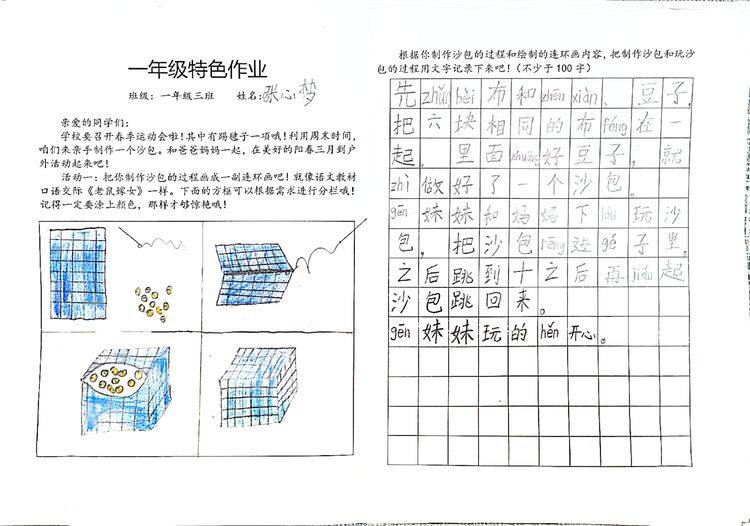 一年级特色作业
班级：一年级三班 姓名：张心梦
亲爱的同学们：
学校要召开春季运动会啦！其中有踢毽子一项哦！利用周末时间，
咱们来亲手制作一个沙包。和爸爸妈妈一起，在美好的阳春三月到户
外活动起来吧！
活动一：把你制作沙包的过程画成一副连环画吧！就像语文教材
口语交际《老鼠嫁女》一样。下面的方框可以根据需求进行分栏哦！
记得一定要涂上颜色，那样才够惊艳哦！
根据你制作沙包的过程和绘制的连环画内容，把制作沙包和玩沙
包的过程用文字记录下来吧！（不少于100字）
先zhǔn bèi布和zhēn xiàn、豆子，
把六块相同的布féng在一
起。里面zhuāng好豆子，就
zhì做好了一个沙包。
gēn妹妹和妈妈下lóu玩沙
包，把沙包rēng进gé子里。
之后跳到十之后再jiǎn起
沙包跳回来。
gēn妹妹玩的hěn开心。